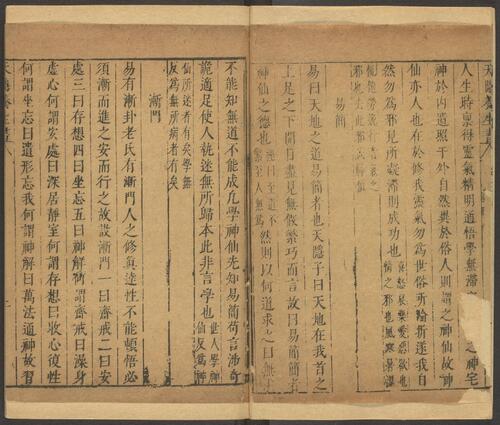 人生時稟得靈氣精明通悟學無滯
之神宅
神於內遺照于外自然異於俗人則謂之神仙故神
仙亦人也在於修我靈氣勿為世俗所淪折遂我自
然勿為邪見所凝滯則成功也
喜怒哀樂愛惡欲七者
情之邪也風寒暑濕
易簡
易曰天地之道易簡者也天隱子曰天地在我首之
上足之下開目盡見無假繁巧而言故曰易簡易簡者
神仙之德也
經曰至道不
繁至人無為
然則以何道求之曰無求
不能知無道不能成凡學神仙先知易簡苟言涉奇
詭適足使人執迷無所歸本此非吾學也
世人學神
仙反為神
仙所迷者有矣學無
反為無所病者有矣
漸門
易有漸卦老氏有漸門人之修眞達性不能頓悟必
須漸而進之安而行之故設漸門一曰齋戒二曰安
處三曰存想四曰坐忘五曰神解何謂齋戒曰澡身
虛心何謂安處曰深居靜室何謂存想曰收心復性
何謂坐忘曰遺形忘我何謂神解曰萬法通神故習